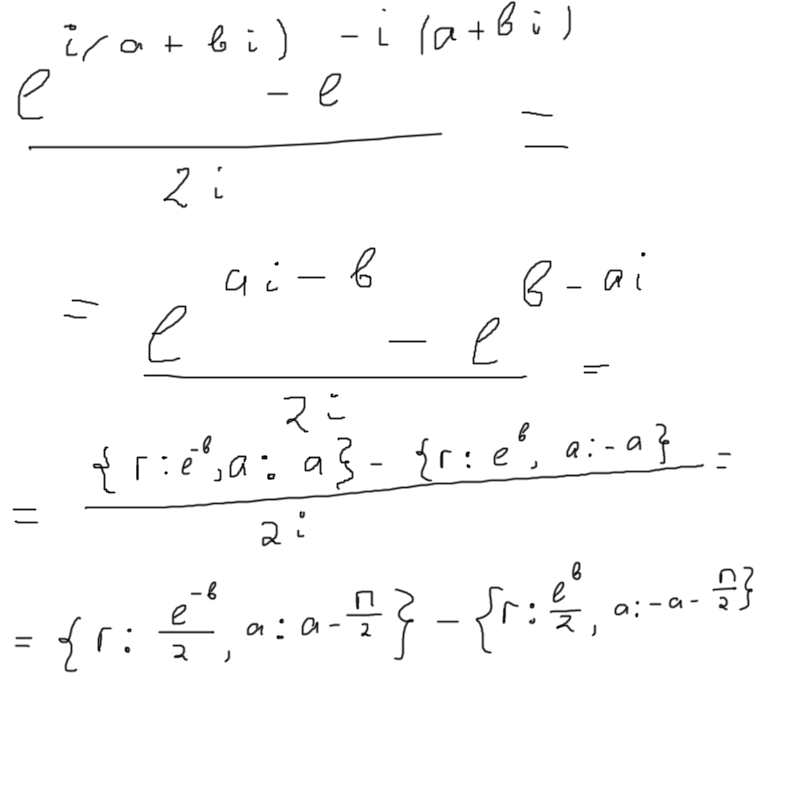 e^{i(a + bi)} - e^{-i(a + bi)} / 2i =
= e^{ai - b} - e^{b - ai} / 2i =
= {r : e^{-b}, a : a} - {r : e^{b}, a : -a} / 2i =
= {r : e^{-b}/2, a : a - π/2} - {r : e^{b}/2, a : -a - π/2}